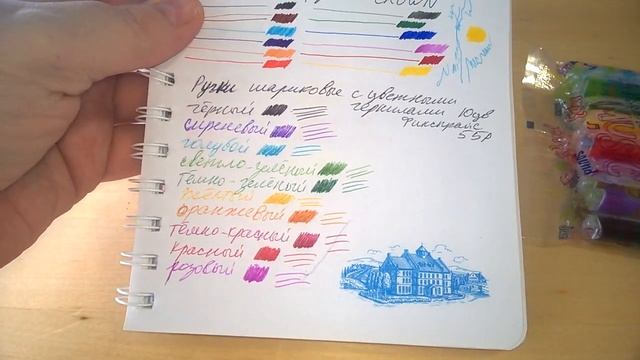 Ручки шариковые с цветными
чернилами 10цв
Фикспрайс
55р
чёрный
сиреневый
голубой
светло-зелёный
тёмно-зелёный
жёлтый
оранжевый
тёмно-красный
красный
розовый